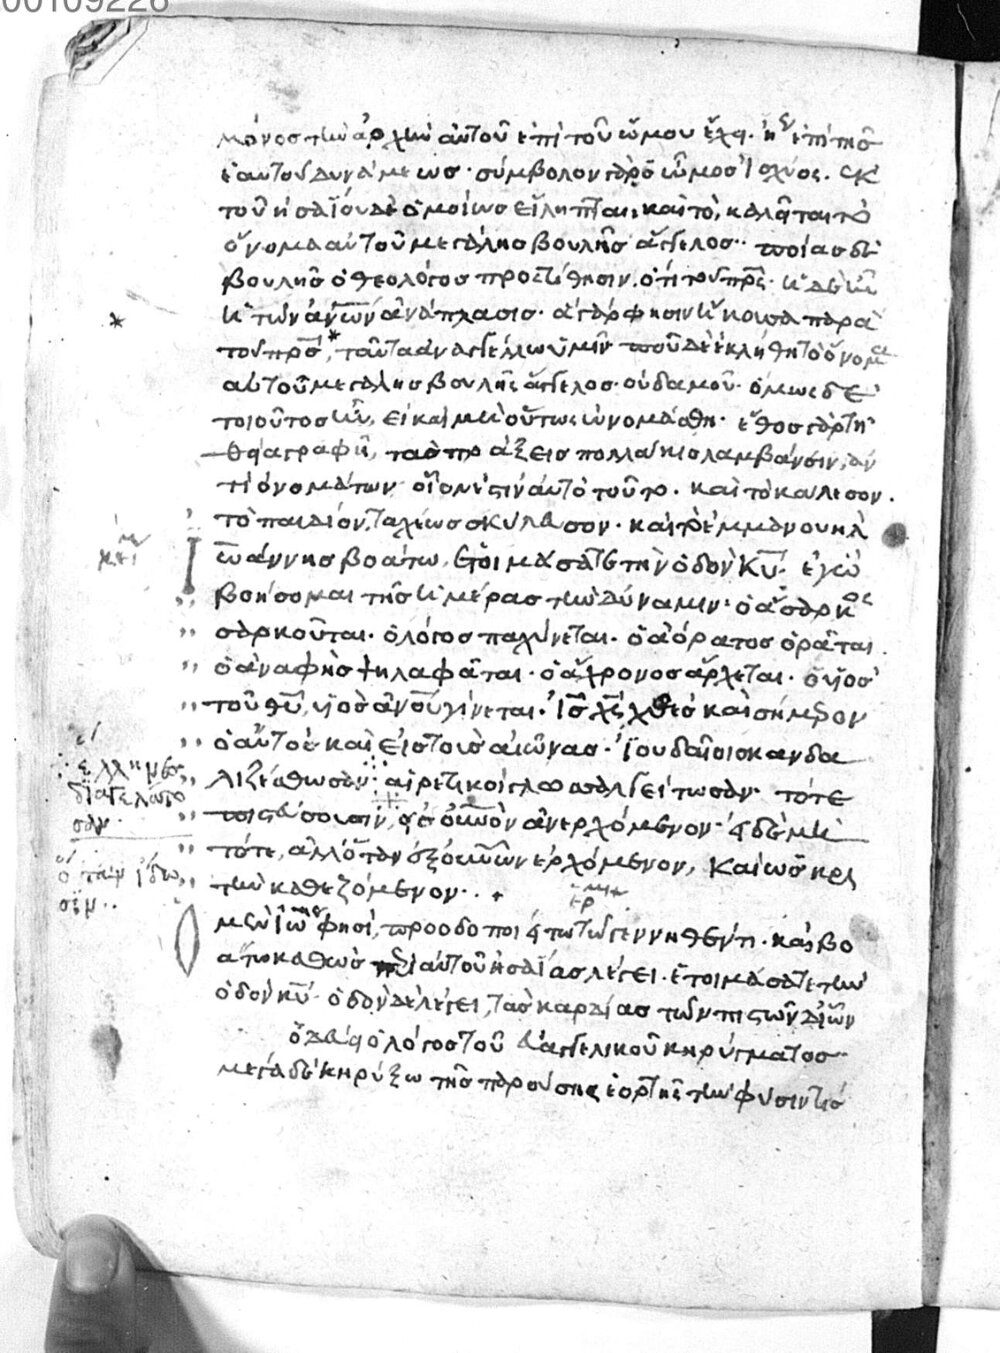 00109226
μόνος τὴν ἀρχὴν αὐτοῦ ἐπὶ τοῦ ὤμου ἔχει. ἢ ἐπὶ τῆς
ἑαυτοῦ δυνάμεως· σύμβολον γὰρ ὦμος ἰσχύος. ἐκ
τοῦ ἡσαΐου δὲ ὁμοίως εἴληπται, καὶ τὸ, καλεῖται τὸ
ὄνομα αὐτοῦ μεγάλης βουλῆς ἄγγελος·· ποίας δὲ
βουλῆς ὁ θεολόγος προστίθησιν. ὅτι τοῦ πρς·
ἡ τῶν ἀνων ἀνάπλασις· ἃ γάρ φησιν ἤκουσα παρὰ
τοῦ πρς, ταῦτα ἀναγγέλλω ὑμῖν ποῦ δὲ ἐκλήθη τὸ ὄνομα
αὐτοῦ μεγάλης βουλῆς ἄγγελος· οὐδαμοῦ· ὅμως δὲ
τοιοῦτος ἦν, εἰ καὶ μὴ οὕτως ὠνομάσθη· ἔθος γὰρ τῇ
θείᾳ γραφῇ, τὰς πράξεις πολλάκις λαμβάνειν, ἀν
τὶ ὀνομάτων οἷόν ἐστιν αὐτὸ τοῦτο. καὶ τὸ κάλεσον.
τὸ παιδίον, ταχέως σκύλευσον· καὶ τὸ ἐμμανουήλ
ἰωάννης βοάτω, ἑτοιμάσατε τὴν ὁδὸν κυ· ἐγὼ
βοήσομαι τῆς ἡμέρας τὴν δύναμιν· ὁ ἄσαρκος
σαρκοῦται· ὁ λόγος παχύνεται. ὁ ἀόρατος ὁρᾶται.
ὁ ἀναφὴς ψηλαφᾶται· ὁ ἄχρονος ἄρχεται. ὁ υἱὸς
τοῦ θυ, υἱὸς ἀνου γίνεται. ἰς χς χθὲς καὶ σήμερον
ὁ αὐτὸς καὶ εἰς τοὺς αἰῶνας· ἰουδαῖοι σκανδα
λιζέσθωσαν· αἱρετικοὶ γλωσσαλγείτωσαν· τότε
πιστεύσουσιν, εἰς οὐνον ἀνερχόμενον· εἰ δὲ μὴ
τότε, ἀλλ' ὅταν ἐξ οὐνων ἐρχόμενον, καὶ ὡς κρι
τὴν καθεζόμενον·. +
ἕλληνες
διαγελάτω
σαν·
μὲν ἰω φησί, προοδοποιείτω τῷ γεννηθέντι. καὶ βο
άτω καθὼς αὐτοῦ ἡσαΐας λέγει. ἑτοιμάσατε τὴν
ὁδὸν κυ· ὁδὸν δὲ λέγει, τὰς καρδίας τῶν πιστῶν
ὁ λόγος τοῦ εὐαγγελικοῦ κηρύγματος··
μετὰ δὲ κηρύξω τῆς παρούσης ἑορτῆς τὴν φύσιν τίς